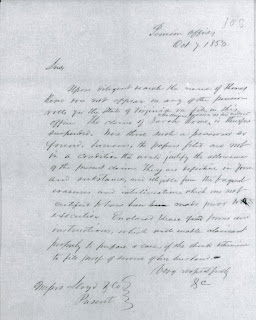 183
Pension Office
Oct 7 1853
Sirs
Upon diligent search the name of Thomas
does not appear in any of the pension
rolls for the State of Virginia on file in this
office. The claim of Sarah is therefore
suspended. Was there such a pensioner as
the papers filed are not
in a condition that would justify the allowance
of the present claim. They are defective in form
and substance, and
erasures and interlineations which are not
certified to have been made prior to
execution. Enclosed I send forms and
instructions, which will enable claimant
properly to prepare a case, if she should determine
to file proof of service of her husband
Very respectfully
&c
Messrs Lloyd & Co
Present